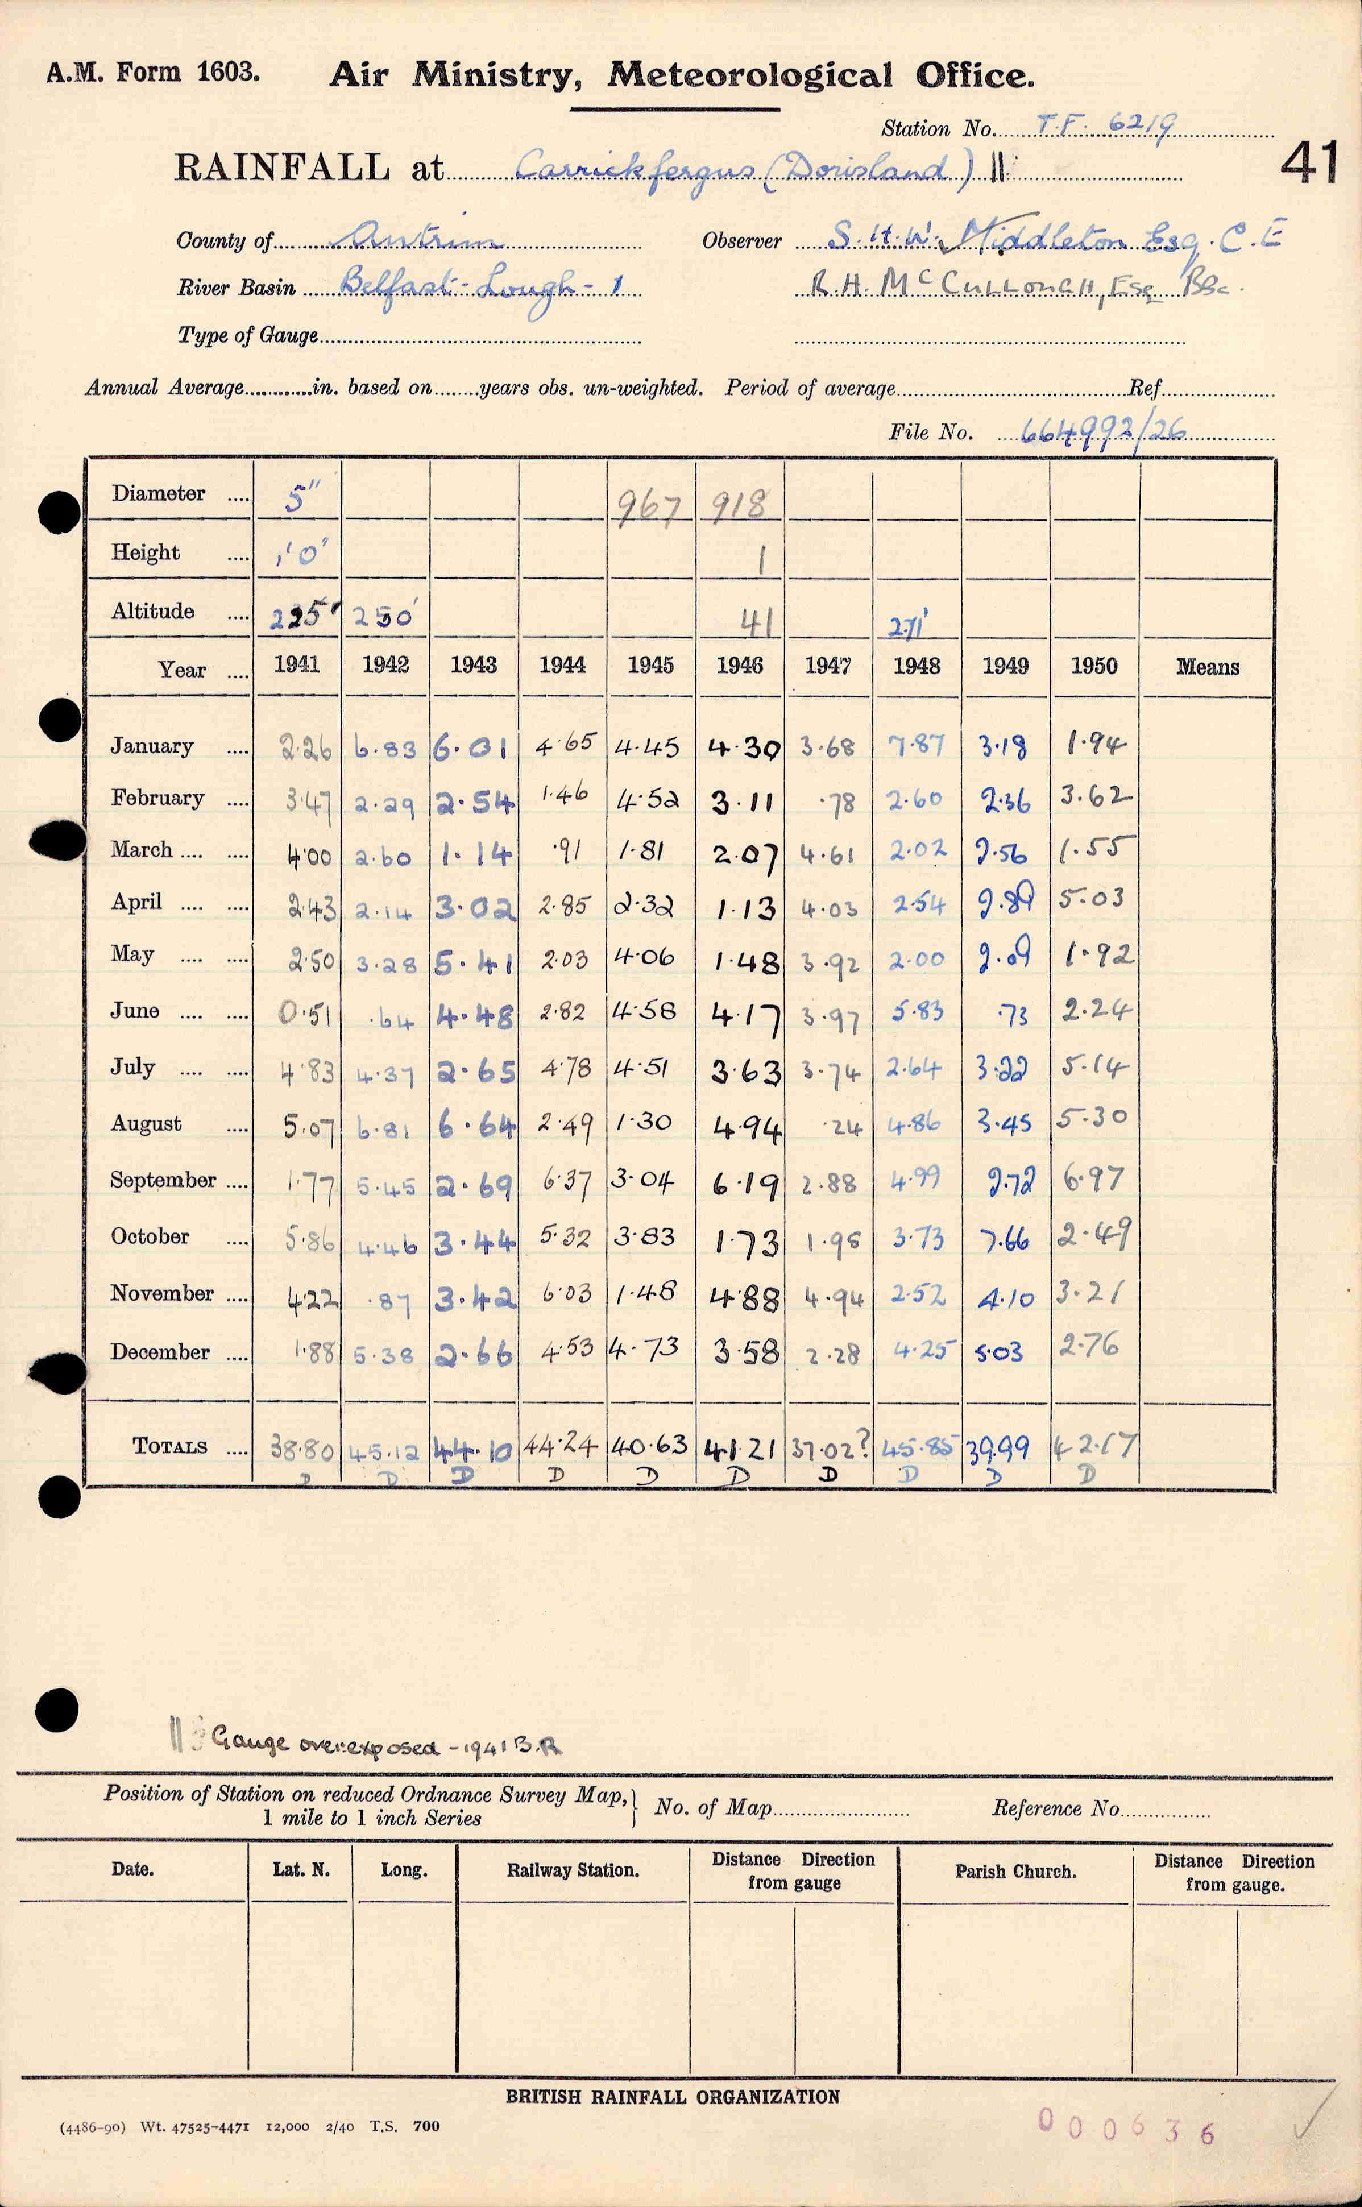 A.M. Form 1603. Air Ministry, Meteorological Office.
Station No. T.F. 6219
41
RAINFALL at Carrickfergus (Dorisland) ||
County of Antrim Observer S. H. W. Middleton Esq. C. E
River Basin Belfast Lough - 1 R. H. McCULLOUGH, Esq BSc.
Type of Gauge
Annual Average in. based on years obs. un-weighted. Period of average Ref
File No. 664992/26
Diameter 5" 967 918
Height 1'0" 1
Altitude 225' 250' 41 271'
Year 1941 1942 1943 1944 1945 1946 1947 1948 1949 1950 Means
January 2.26 6.83 6.01 4.65 4.45 4.30 3.68 7.87 3.18 1.94
February 3.47 2.29 2.54 1.46 4.52 3.11 .78 2.60 2.36 3.62
March 4.00 2.60 1.14 .91 1.81 2.07 4.61 2.02 2.56 1.55
April 2.43 2.14 3.02 2.85 2.32 1.13 4.03 2.54 2.89 5.03
May 2.50 3.28 5.41 2.03 4.06 1.48 3.92 2.00 2.09 1.92
June 0.51 .64 4.48 2.82 4.58 4.17 3.97 5.83 .73 2.24
July 4.83 4.37 2.65 4.78 4.51 3.63 3.74 2.64 3.22 5.14
August 5.07 6.81 6.64 2.49 1.30 4.94 .24 4.86 3.45 5.30
September 1.77 5.45 2.69 6.37 3.04 6.19 2.88 4.99 2.72 6.97
October 5.86 4.46 3.44 5.32 3.83 1.73 1.98 3.73 7.66 2.49
November 4.22 .87 3.42 6.03 1.48 4.88 4.94 2.52 4.10 3.21
December 1.88 5.38 2.66 4.53 4.73 3.58 2.28 4.25 5.03 2.76
TOTALS 38.80 45.12 44.10 44.24 40.63 41.21 37.02? 45.85 39.99 42.17
D D D D D D D D D D
|| Gauge overexposed - 1941 B.R
Position of Station on reduced Ordnance Survey Map, No. of Map Reference No
1 mile to 1 inch Series
Date. Lat. N. Long. Railway Station. Distance Direction from gauge Parish Church. Distance Direction from gauge.
BRITISH RAINFALL ORGANIZATION
(4486-90) Wt. 47525-4471 12,000 2/40 T.S. 700
000636